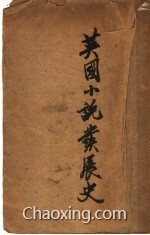 英國小說發展史
Chaoxing.com